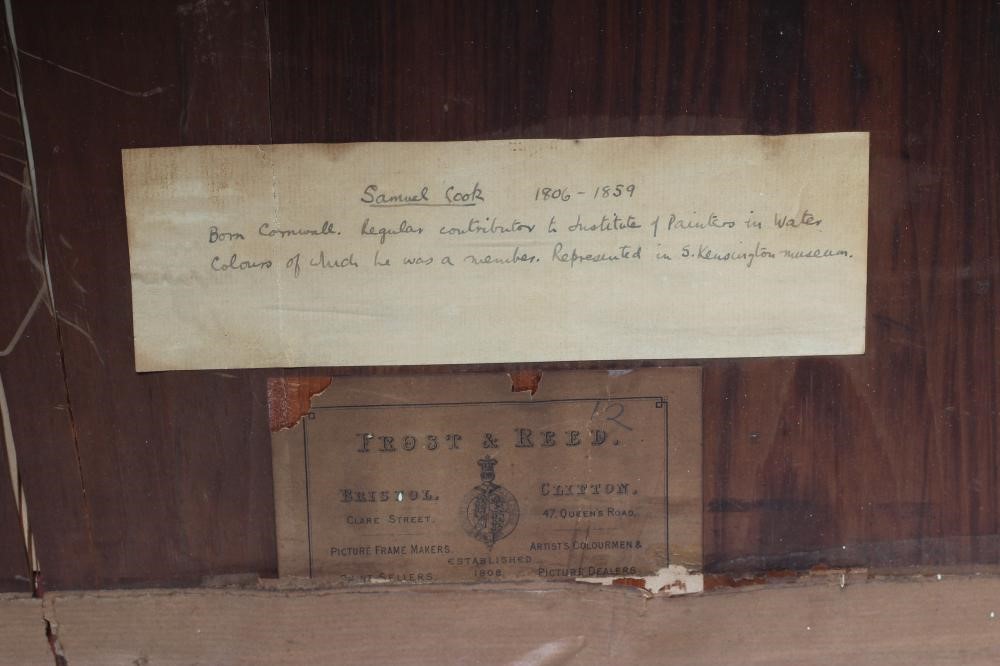 Samuel Cook 1806 - 1859
Born Cornwall. Regular contributor to Institute of Painters in Water
Colours of which he was a member. Represented in S. Kensington museum.
12
FROST & REED.
BRISTOL. CLIFTON.
CLARE STREET. 47, QUEEN'S ROAD.
PICTURE FRAME MAKERS. ARTISTS COLOURMEN &
ESTABLISHED
PRINT SELLERS. 1808 PICTURE DEALERS.